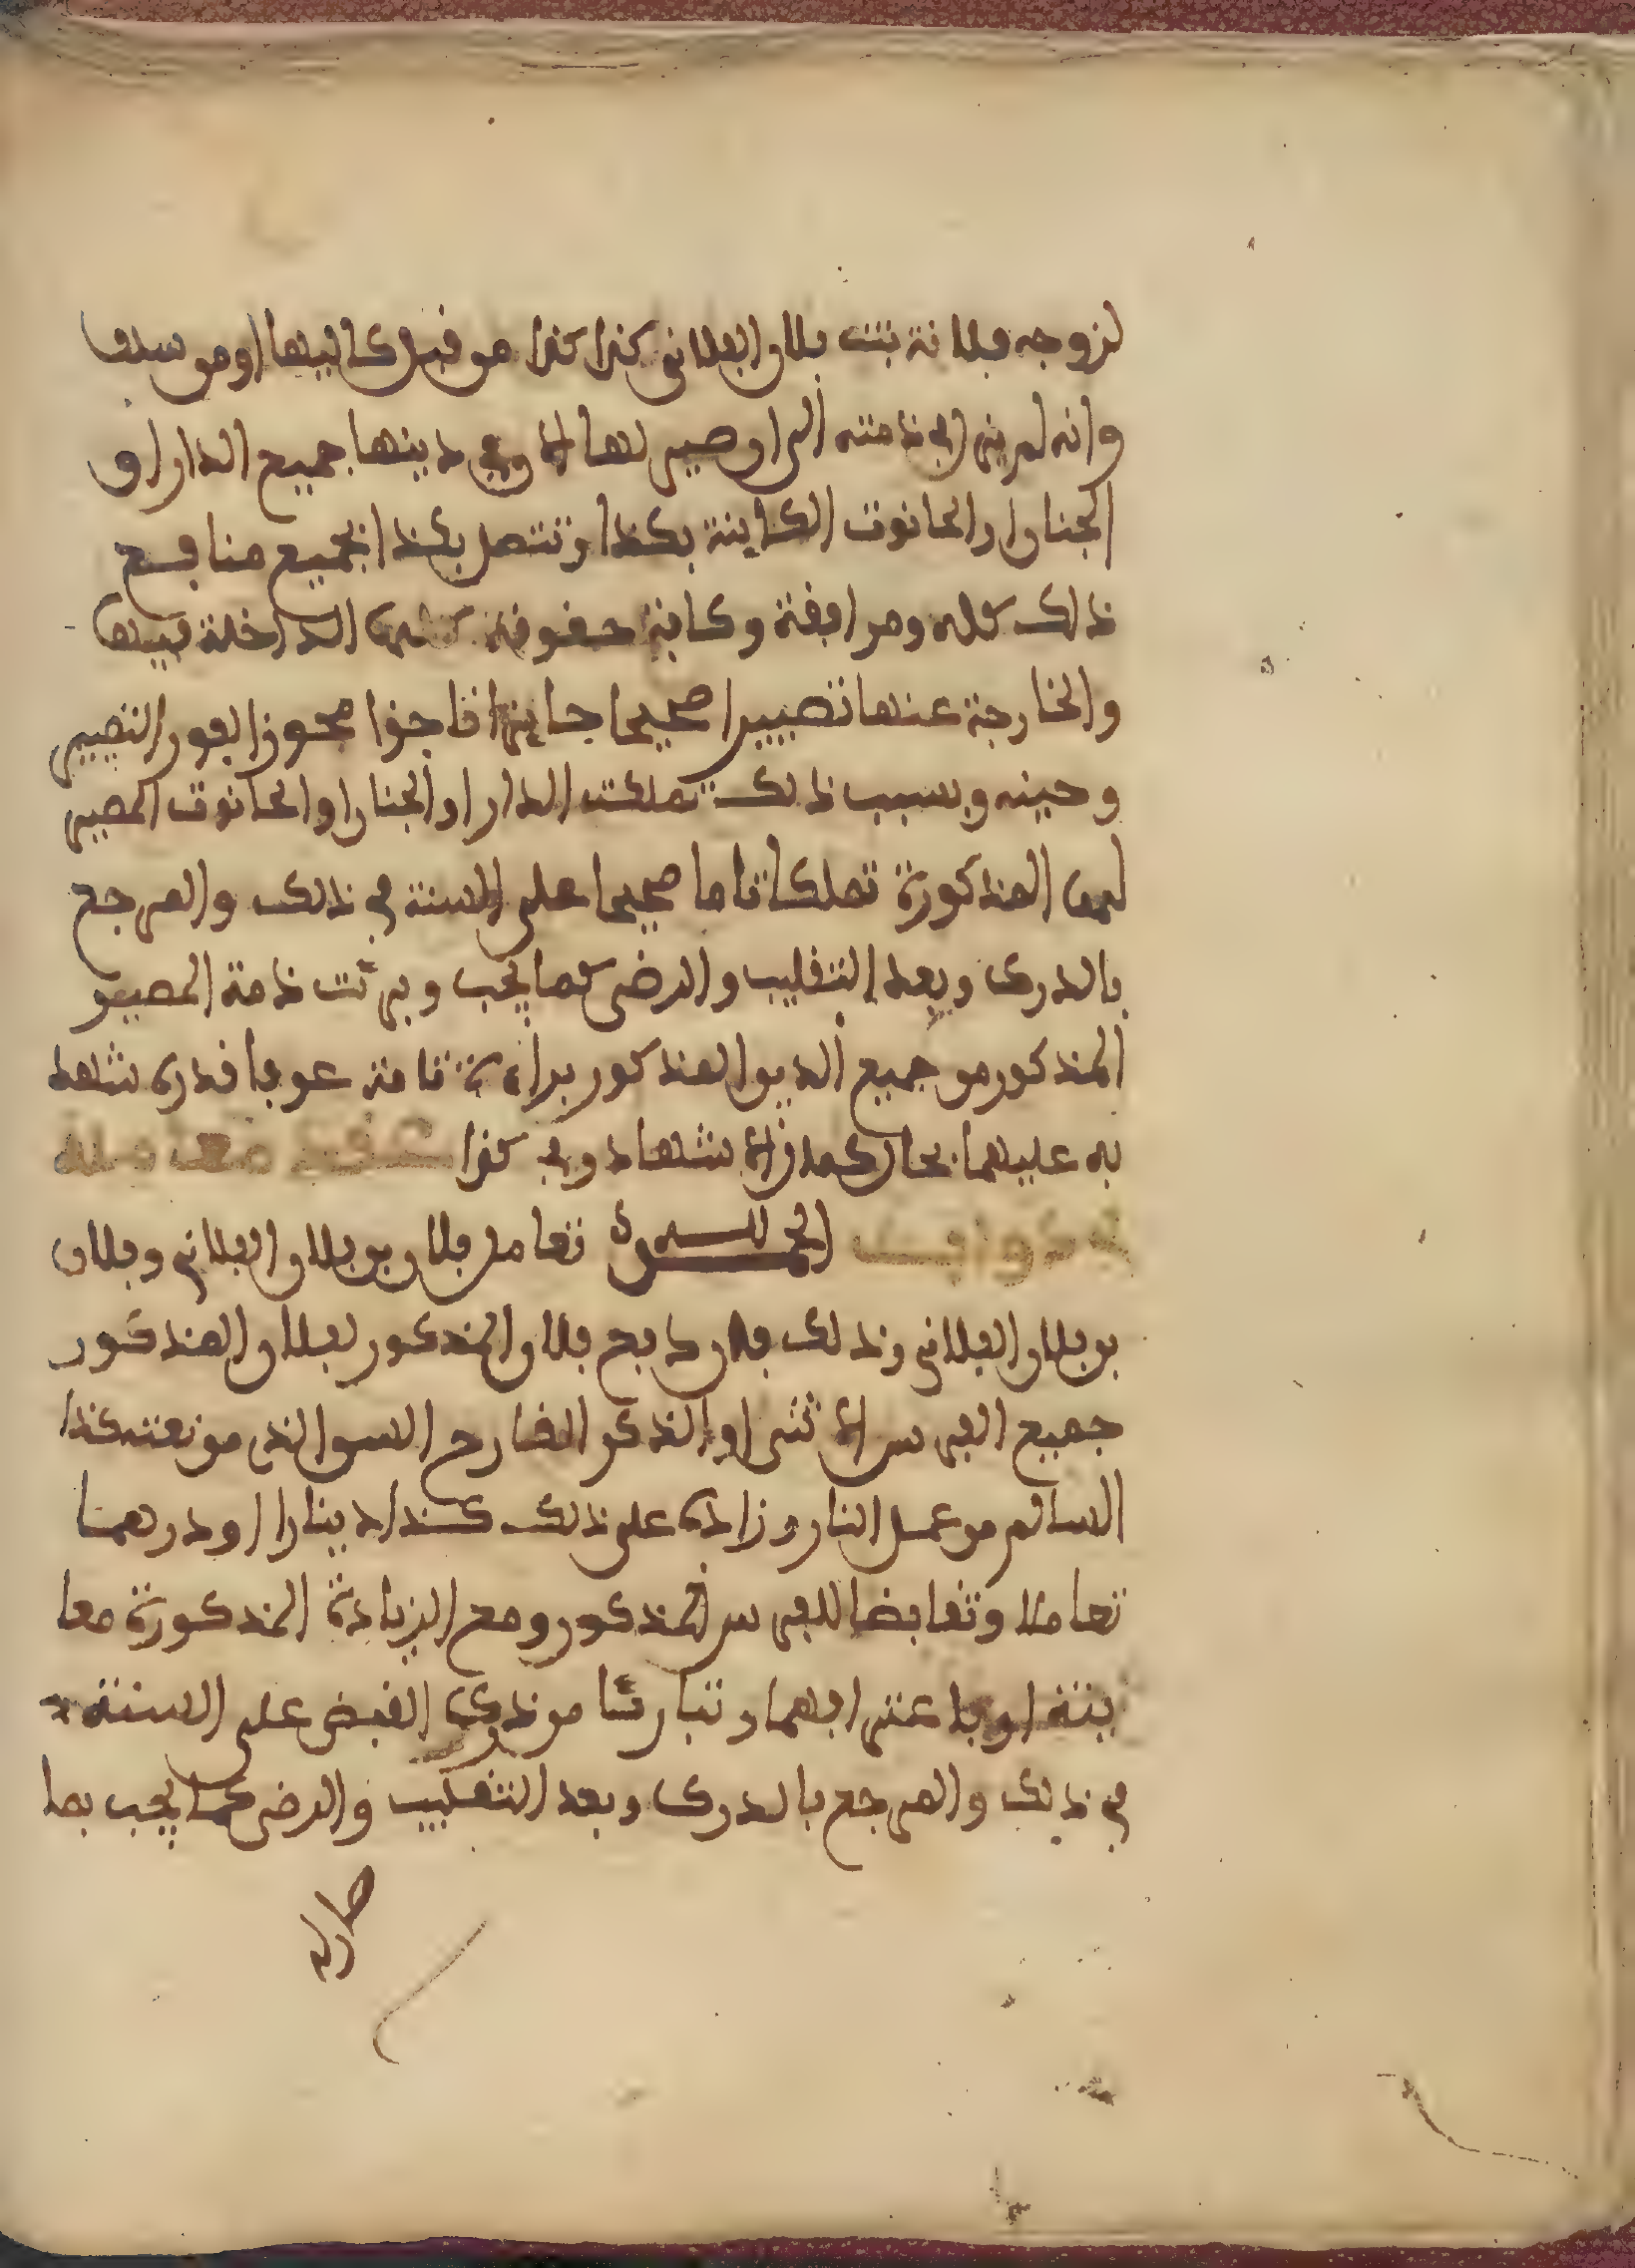 لزوجه فلانة بنت فلان الفلاني كذا كذا من قبل كاليها او من سلف
وانه لم يزل في ذمته الى ان صير لها الان في دينها جميع الدار او
الجنان او الحانوت الكاينة بكذا وتتصل بكذا بجميع منافع
ذلك كله ومرافقة وكافة حقوقه كلها الداخلة فيها
والخارجة عنها تصييرا صحيحا جايزا ناجزا محوزا لفور التصيير
وحينه وبسبب ذلك تملكت الدار او الجنان او الحانوت المصير
لها المذكورة تملكا تاما صحيحا على السنة في ذلك والمرجع
بالدرك وبعد التقليب والرضى كما يجب وبرئت ذمة المصير
المذكور من جميع الدين المذكور براءة تامة عرفا قدره شهد
به عليهما بحال كمال الاشهاد وفي كذا عقد معاملة
في دواب الحمد لله تعامل فلان بن فلان الفلاني وفلان
بن فلان الفلاني وذلك بان دفع فلان المذكور لفلان المذكور
جميع الفرس الانثى او الذكر القارح السن الذي من نعته كذا
السالم من عمل النار وزاده على ذلك كذا دينارا او درهما
تعاملا وتقابضا للفرس المذكور ومع الزيادة المذكورة معا
ينة او باعترافهما وتباريا من ذلك القبض على السنة
في ذلك والمرجع بالدرك وبعد التقليب والرضى كما يجب بعد